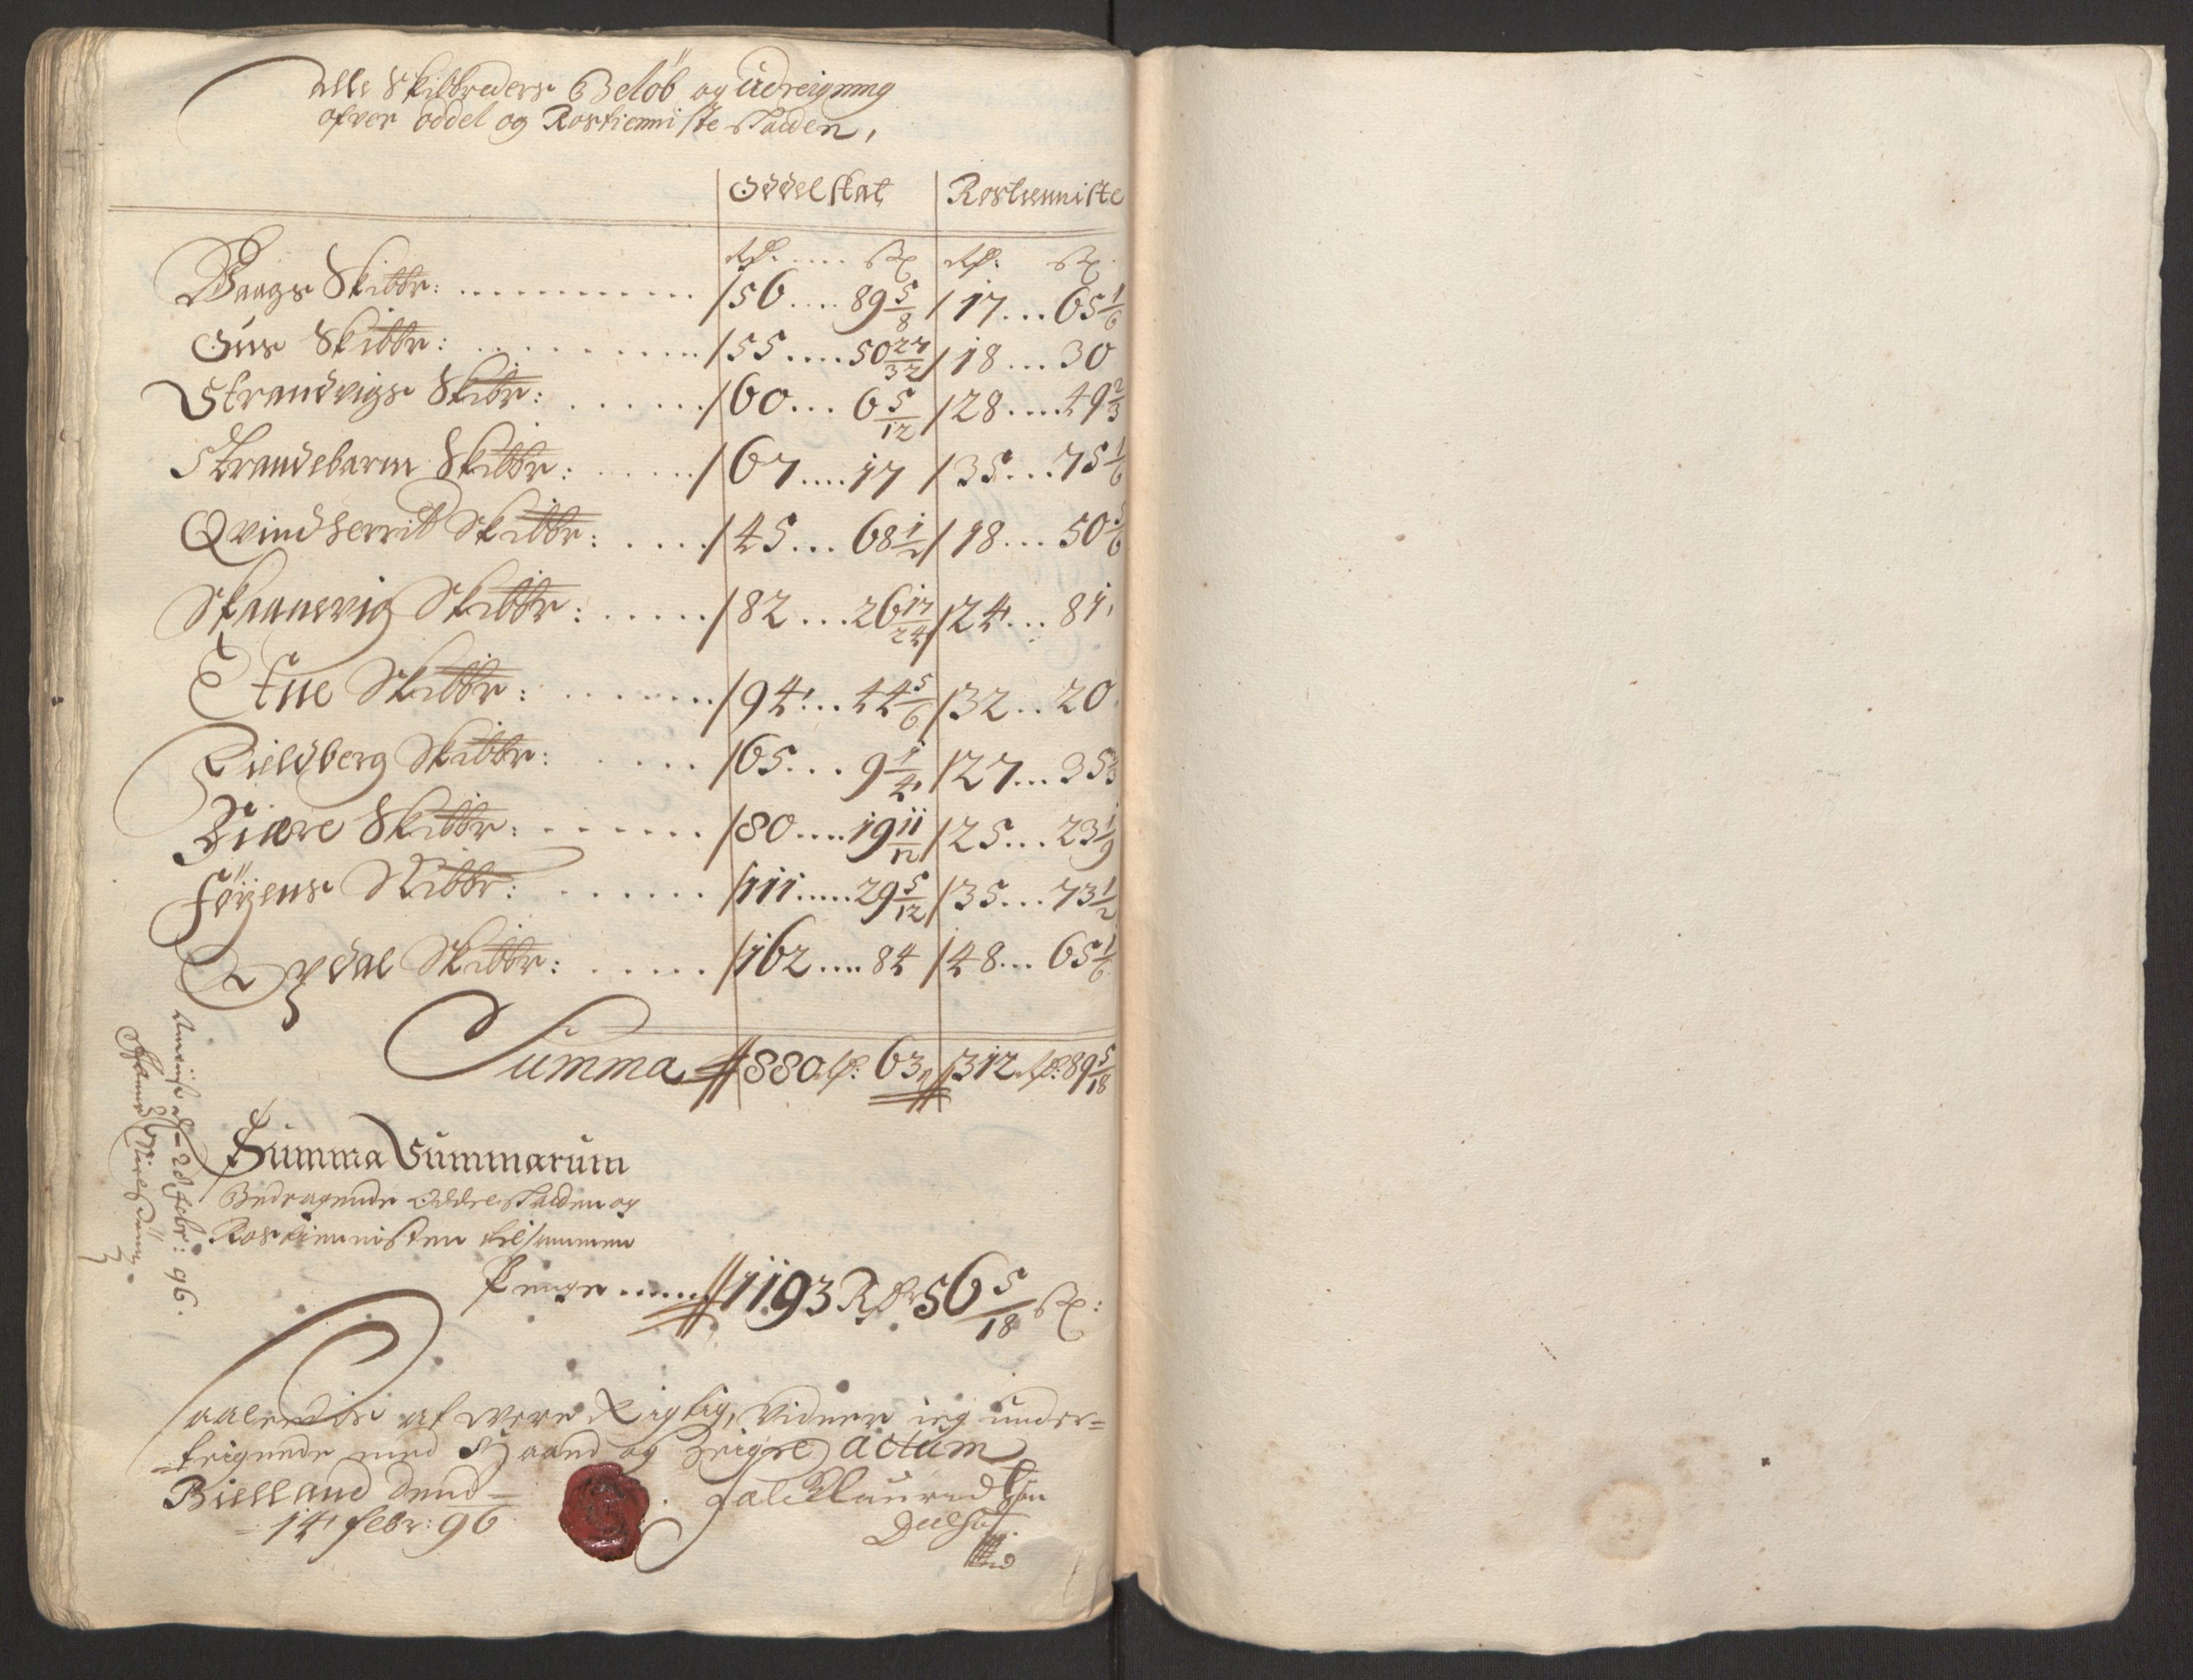 alle Skibbreders Beløb og Udreigning
ofver oddel og Rostienniste Skatden,
Oddel skat Rostienniste
Rdr: .... sk Rdr: sk
Waags Skibbr: ........... /56.... 89 5/8 /17... 65 1/6
Ous Skibbr: .......... /55.... 50 27/32 /18... 30
Strandvigs Skibr: ...... /60... 6 5/12 /28.... 49 2/3
Strandebarm Skibbr: ..... /67.... 17 /35... 75 1/6
Qvindherrit Skibbr: .... /45... 68 1/2 /18... 50 5/6
Skaanevig Skibbr: ..... /82... 26 17/24 /24... 81,
Etne Skibbr: ....... /94... 44 5/6 /32.. 20
Fieldberg Skibbr: ..... /65... 9 1/4 /27... 35
Fiære Skibbr: ...... /80.... 19 11/12 /25... 23 1/9
Føyens Skibbr: ...... /111..... 29 5/12 /35... 73 1/2
Opdal Skibbr: ..... /162.... 84 /48... 65 1/6
Summa //880 Rdr: 63 //312 Rdr: 89 5/18
Summa Summarum
Bedragende Oddelskatden og
Rostiennisten tilsammen
Penge ...... //1193 Rdr 56 5/18 sk:
28 Febr: 96.
Saaledis at were Rigtig, vidner ieg under-
=teignede med Haand og Zeigne Actum
Bielland dend=
=14 febr: 96